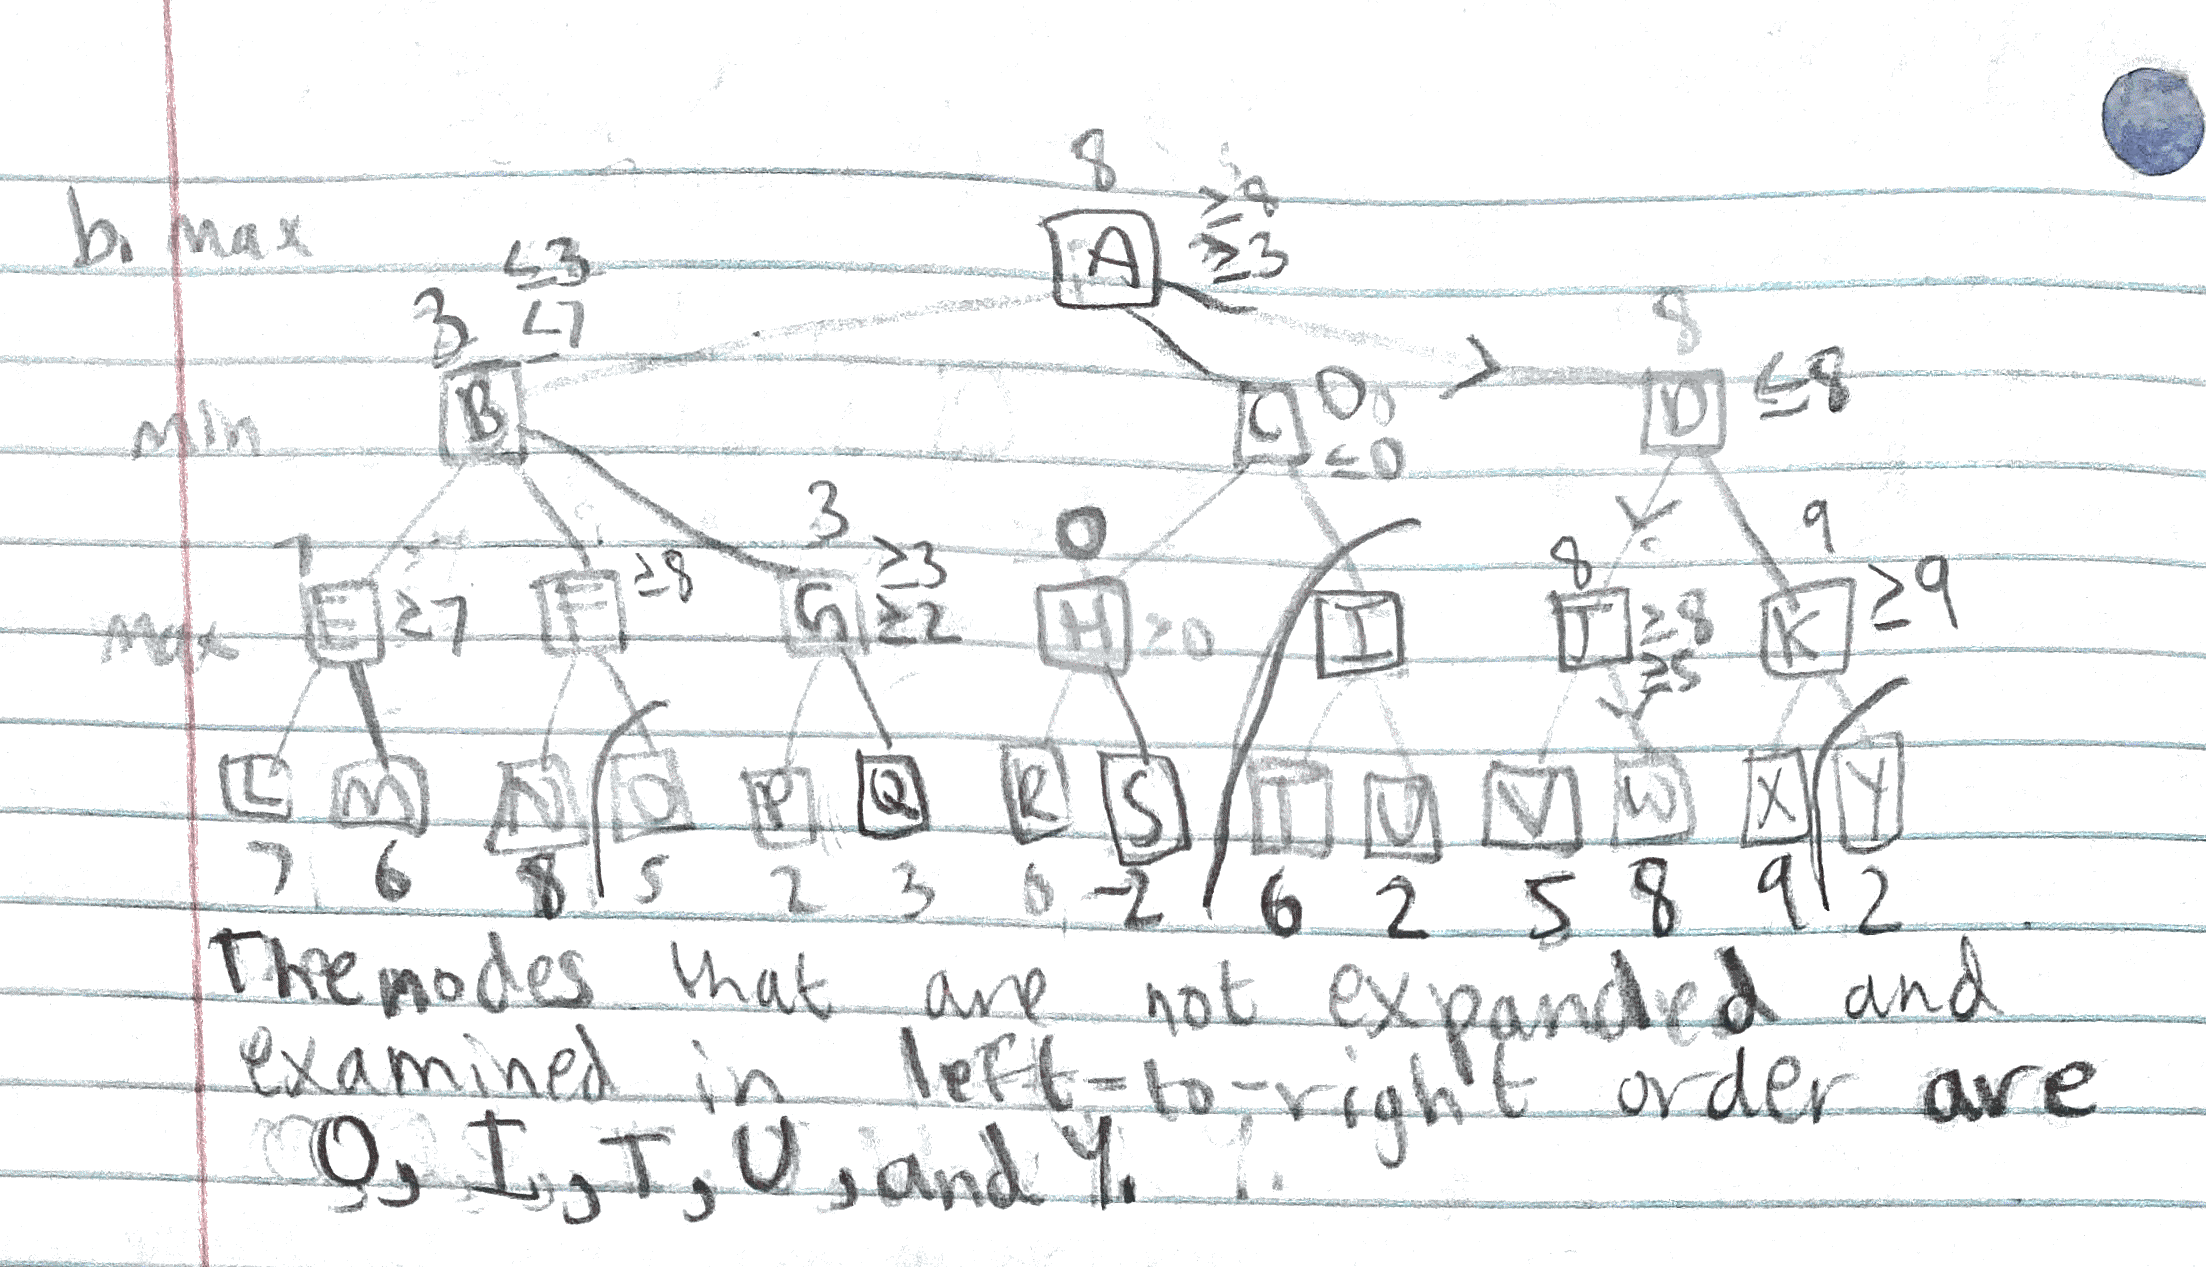 8
b. max A ≥8
≥3
3 ≤3
≤7
8
min B C 0
≤0 D ≤8
7 3 0 8 9
max E ≥7 F ≥8 G ≥3
≥2 H ≥0 I J ≥8
≥5 K ≥9
L M N O P Q R S T U V W X Y
7 6 8 5 2 3 0 -2 6 2 5 8 9 2
The nodes that are not expanded and
examined in left-to-right order are
O, I, T, U, and Y.